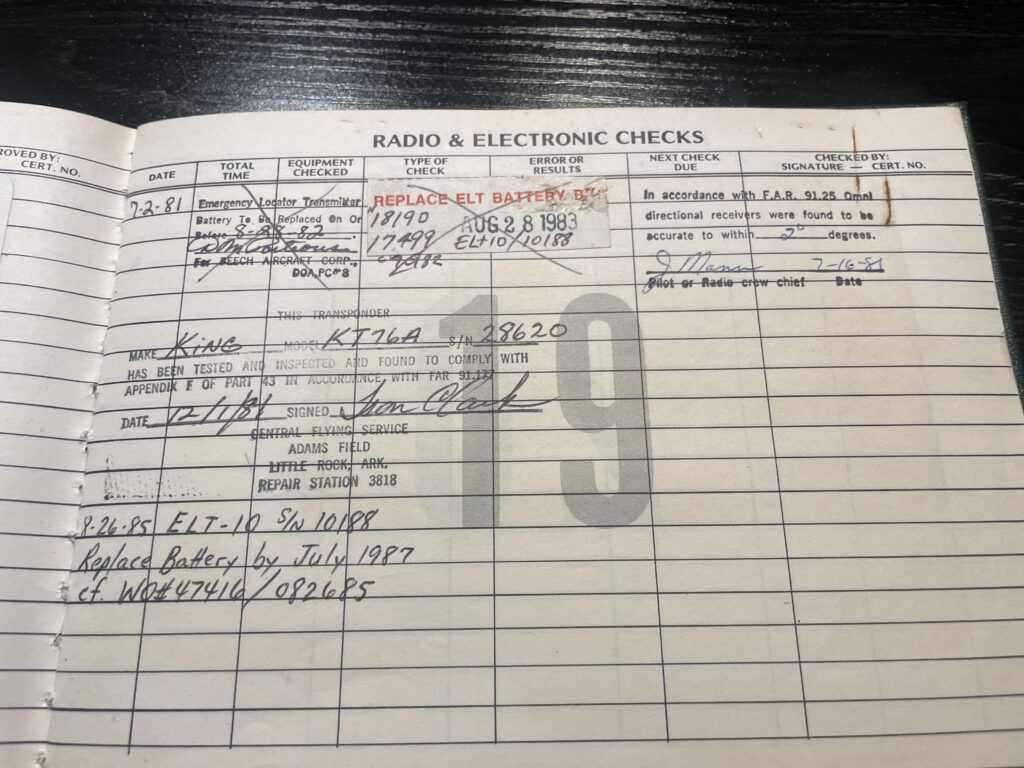 ROVED BY:
CERT. NO.
RADIO & ELECTRONIC CHECKS
DATE
TOTAL TIME
EQUIPMENT CHECKED
TYPE OF CHECK
ERROR OR RESULTS
NEXT CHECK DUE
CHECKED BY:
SIGNATURE — CERT. NO.
7-2-81
Emergency Locator Transmitter
Battery To Be Replaced On Or
Before 8-28-82
For BEECH AIRCRAFT CORP.,
DOA, PC#8
REPLACE ELT BATTERY BY
18190 AUG 28 1983
17499 ELT-10/10188
In accordance with F.A.R. 91.25 Omni
directional receivers were found to be
accurate to within 2° degrees.
J Mann 7-16-81
Pilot or Radio crew chief Date
19
THIS TRANSPONDER
MAKE KING MODEL KT76A S/N 28620
HAS BEEN TESTED AND INSPECTED AND FOUND TO COMPLY WITH
APPENDIX F OF PART 43 IN ACCORDANCE WITH FAR 91.177
DATE 12/1/81 SIGNED
CENTRAL FLYING SERVICE
ADAMS FIELD
LITTLE ROCK, ARK.
REPAIR STATION 3818
8-26-85 ELT-10 S/N 10188
Replace Battery by July 1987
cf. WO#47416/082685